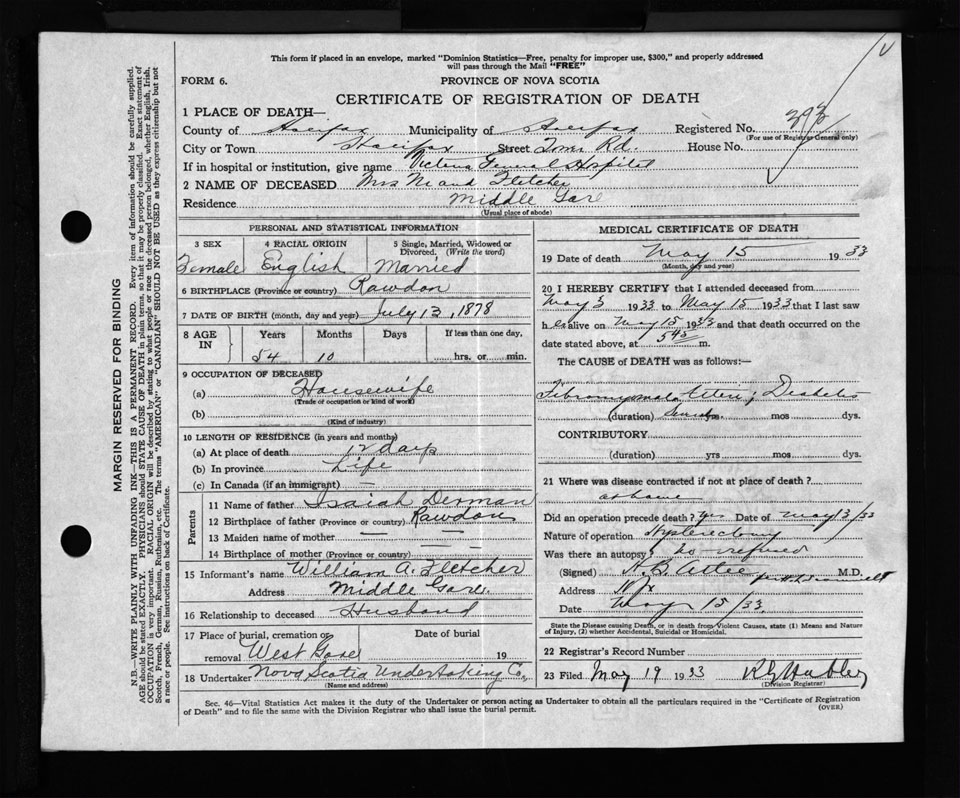 This form if placed in an envelope, marked "Dominion Statistics—Free, penalty for improper use, $300," and properly addressed
will pass through the Mail "FREE"
FORM 6.
PROVINCE OF NOVA SCOTIA
CERTIFICATE OF REGISTRATION OF DEATH
1 PLACE OF DEATH—
County of Halifax Municipality of Halifax Registered No. 393
(For use of Registrar General only)
City or Town Halifax Street Tower Rd. House No.
If in hospital or institution, give name Victoria General Hospital
2 NAME OF DECEASED Mrs Maud Fletcher
Residence Middle Gore
(Usual place of abode)
PERSONAL AND STATISTICAL INFORMATION
3 SEX 4 RACIAL ORIGIN 5 Single, Married, Widowed or
Divorced. (Write the word)
Female English Married
6 BIRTHPLACE (Province or country) Rawdon
7 DATE OF BIRTH (month, day and year) July 13, 1878
8 AGE IN Years Months Days If less than one day,
54 10 hrs. or min.
9 OCCUPATION OF DECEASED
(a) Housewife
(Trade of occupation or kind of work)
(b)
(Kind of industry)
10 LENGTH OF RESIDENCE (in years and months)
(a) At place of death 12 days
(b) In province Life
(c) In Canada (if an immigrant) —
Parents
11 Name of father Isaiah Derman
12 Birthplace of father (Province or country) Rawdon
13 Maiden name of mother — —
14 Birthplace of mother (Province or country) —
15 Informant's name William A. Fletcher
Address Middle Gore.
16 Relationship to deceased Husband
17 Place of burial, cremation or Date of burial
removal West Gore 19
18 Undertaker Nova Scotia Undertaking Co,
(Name and address)
MEDICAL CERTIFICATE OF DEATH
19 Date of death May 15 1933
(Month, day and year)
20 I HEREBY CERTIFY that I attended deceased from
May 3 1933 to May 15 1933 that I last saw
h er alive on May 15 1933 and that death occurred on the
date stated above, at 545 m.
The CAUSE of DEATH was as follows:—
Fibromyomata Uteri, Diabetes
(duration) yrs. mos dys.
CONTRIBUTORY.
(duration) yrs mos dys.
21 Where was disease contracted if not at place of death?
at home
Did an operation precede death? Yes Date of May 13/33
Nature of operation Hysterectomy
Was there an autopsy? No - refused
(Signed) H.B. Atlee M.D.
Address Hfx
Date May 15/33.
State the Disease causing Death, or in death from Violent Causes, state (1) Means and Nature
of Injury, (2) whether Accidental, Suicidal or Homicidal.
22 Registrar's Record Number
23 Filed May 19 1933
(Division Registrar)
Sec. 46—Vital Statistics Act makes it the duty of the Undertaker or person acting as Undertaker to obtain all the particulars required in the "Certificate of Registration
of Death" and to file the same with the Division Registrar who shall issue the burial permit.
(OVER)
MARGIN RESERVED FOR BINDING
N.B.—WRITE PLAINLY WITH UNFADING INK—THIS IS A PERMANENT RECORD. Every item of information should be carefully supplied.
AGE should be stated EXACTLY. PHYSICIANS should STATE CAUSE OF DEATH in plain terms, so that it may be properly classified. Exact statement of
OCCUPATION is very important. RACIAL ORIGIN will be described by stating to what people or race the deceased person belonged, whether English, Irish,
Scotch, French, German, Russian, Ruthenian, etc. The terms "AMERICAN" or "CANADIAN" SHOULD NOT BE USED as they express citizenship but not
a race or people. See instructions on back of Certificate.